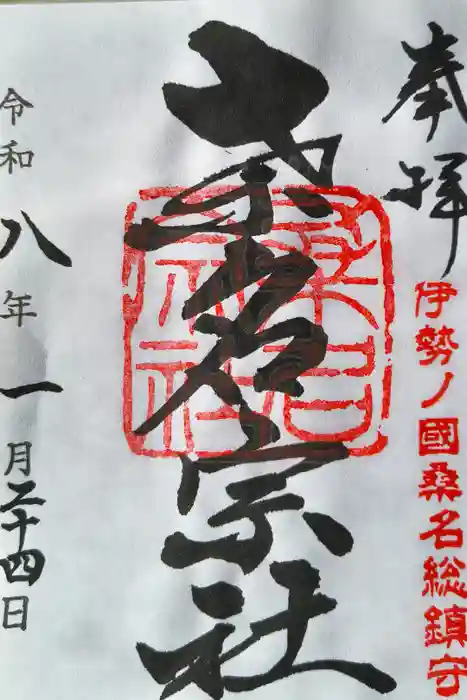 奉拝
伊勢ノ國桑名総鎮守
桑名宗社
令和八年一月二十四日